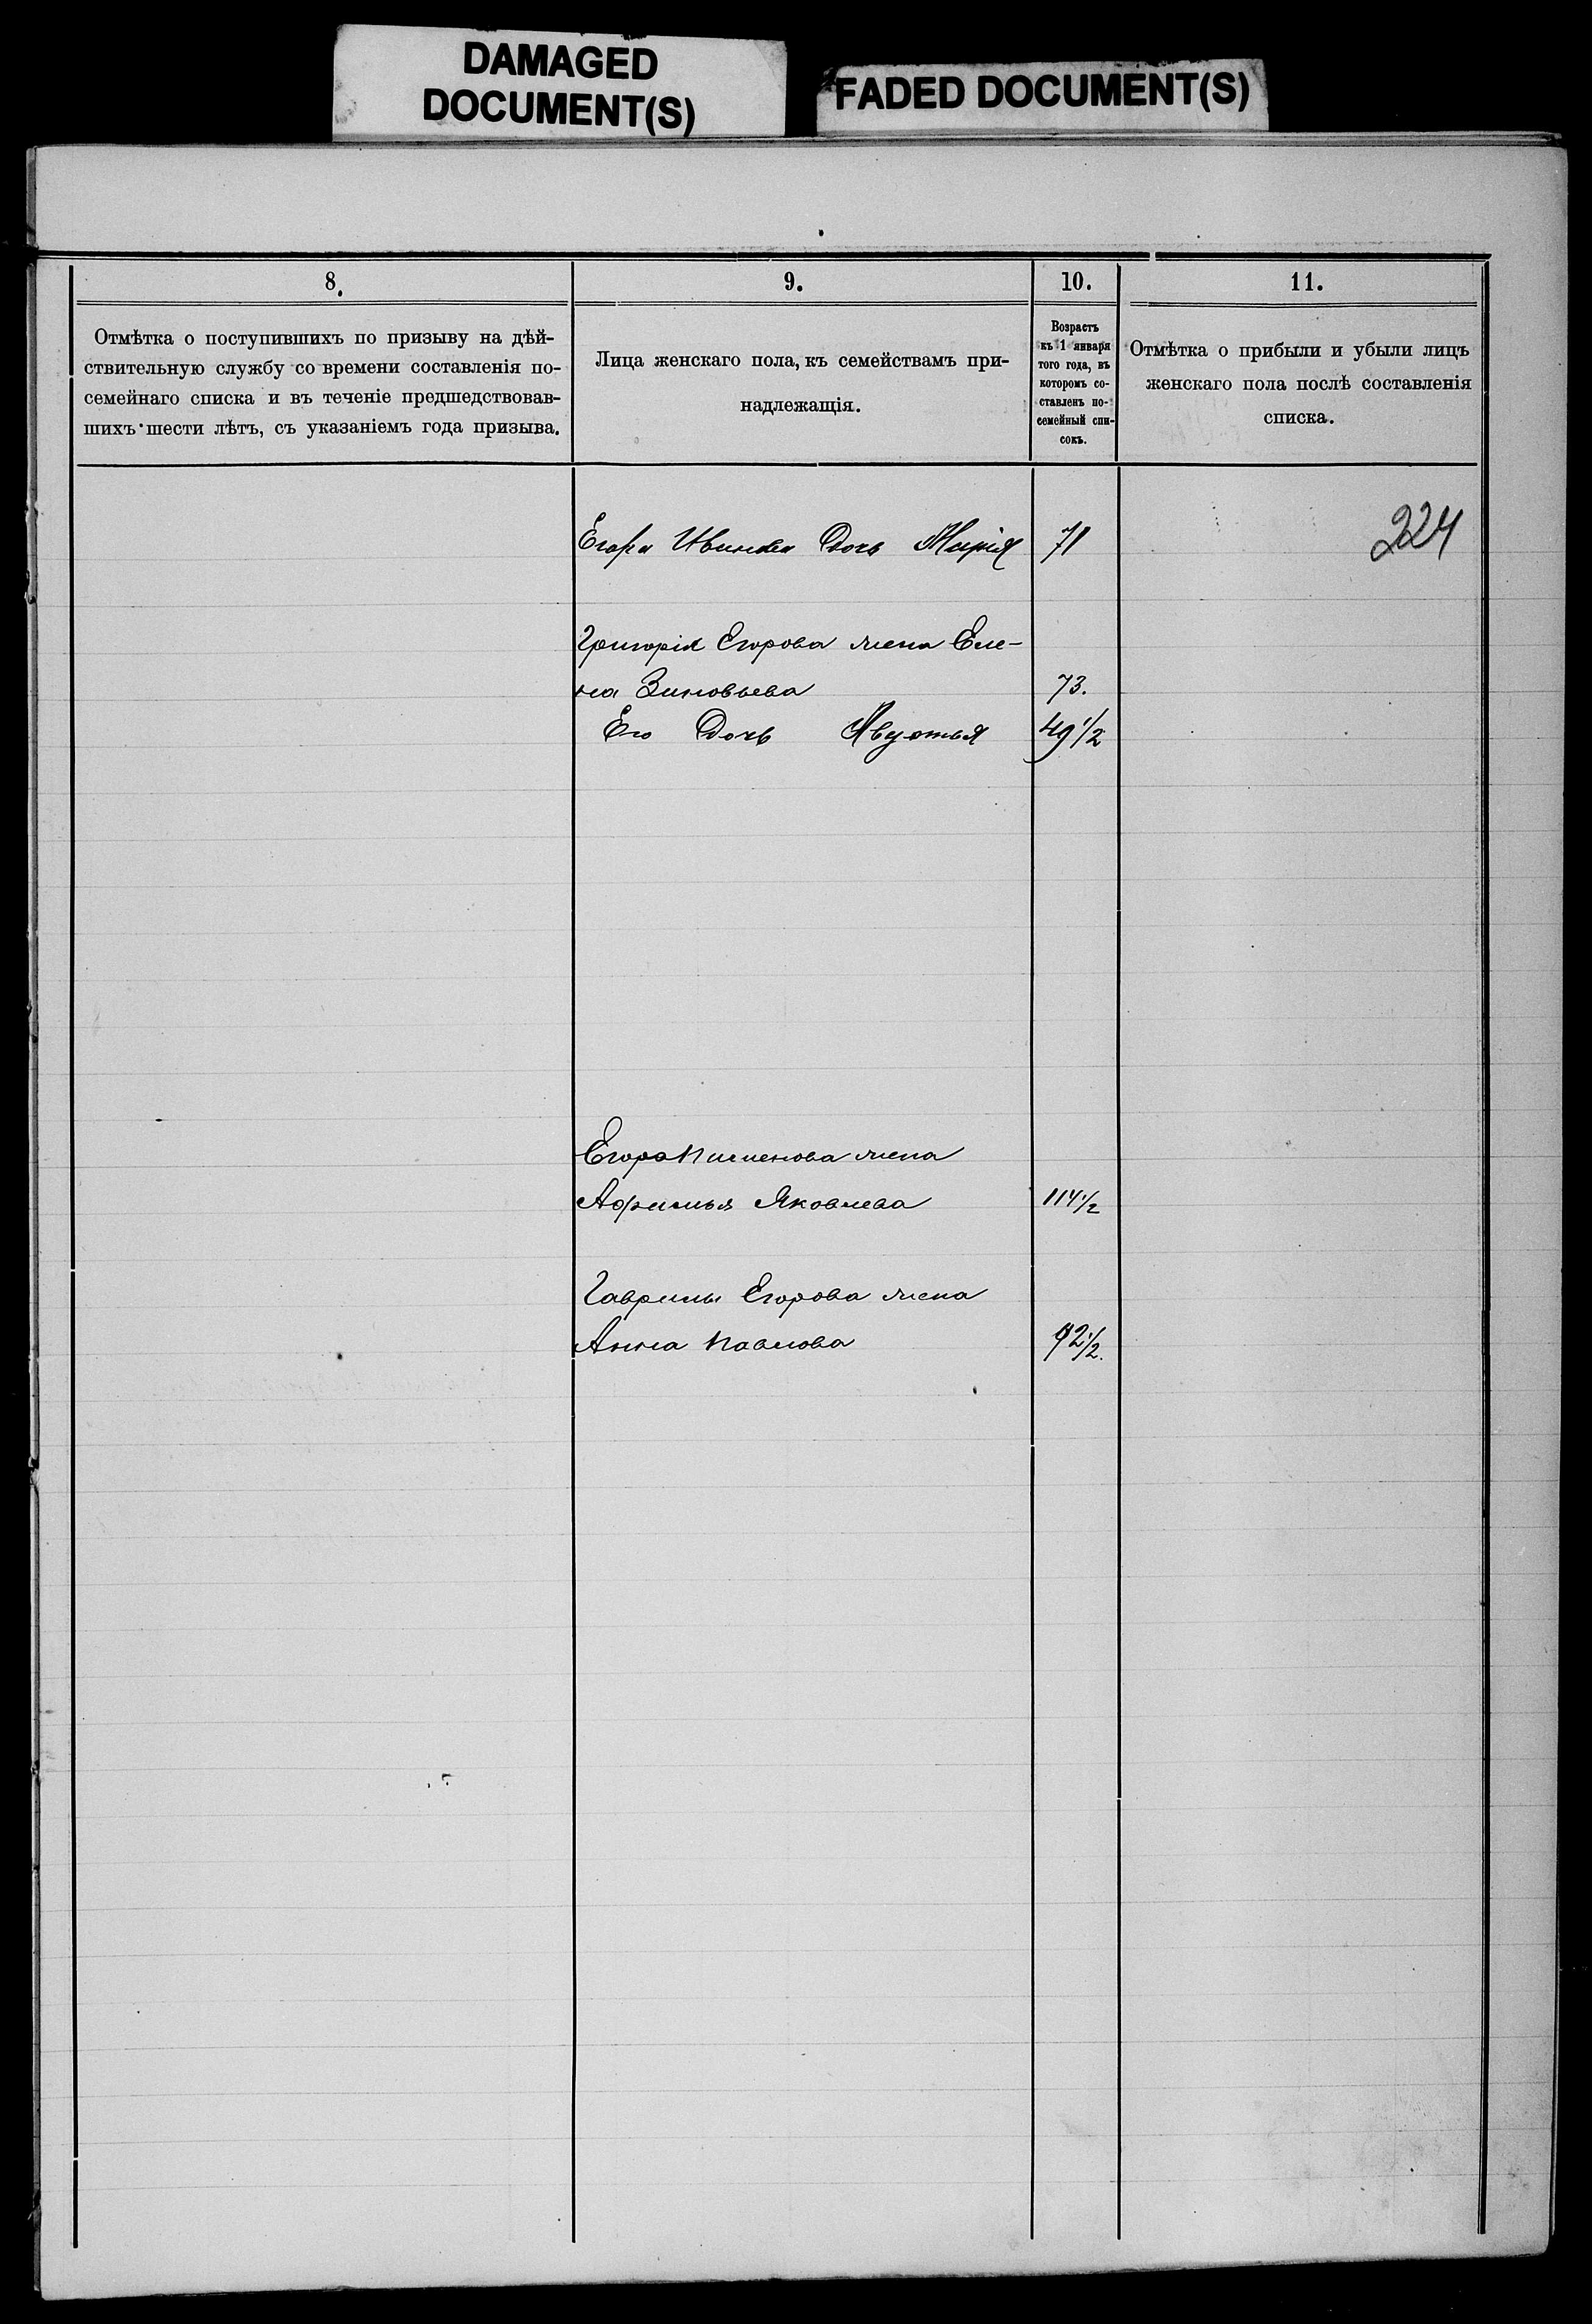 DAMAGED
DOCUMENT(S)
FADED DOCUMENT(S)
8.
9.
10.
11.
Отмѣтка о поступившихъ по призыву на дѣй-
ствительную службу со времени составленія по-
семейнаго списка и въ теченіе предшедствовав-
шихъ шести лѣтъ, съ указаніемъ года призыва.
Лица женскаго пола, къ семействамъ при-
надлежащія.
Возрастъ
къ 1 января
того года, въ
которомъ со-
ставленъ по-
семейный спи-
сокъ.
Отмѣтка о прибыли и убыли лицъ
женскаго пола послѣ составленія
списка.
224
Егора Иванова Дочь Марія 71
Григорія Егорова жена Еле-
на Зиновьева 73.
Его Дочь Авдотья 49 1/2
Егора Пименова жена
Афимья Яковлева 114 1/2
Гаврилы Егорова жена
Анна Павлова 92 1/2.